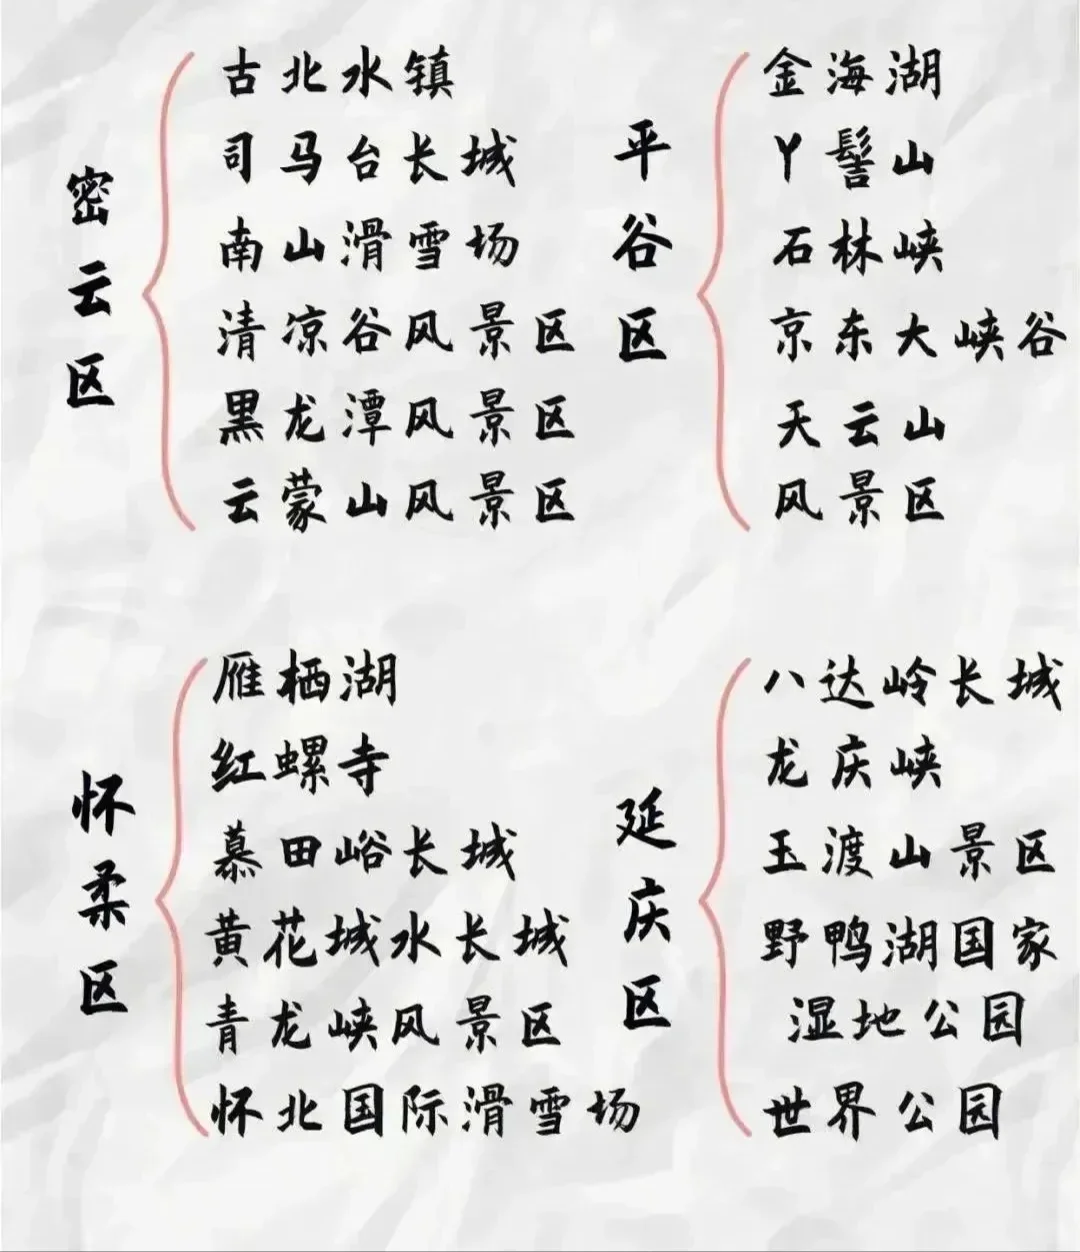 密云区
古北水镇
司马台长城
南山滑雪场
清凉谷风景区
黑龙潭风景区
云蒙山风景区
平谷区
金海湖
丫髻山
石林峡
京东大峡谷
天云山
风景区
怀柔区
雁栖湖
红螺寺
慕田峪长城
黄花城水长城
青龙峡风景区
怀北国际滑雪场
延庆区
八达岭长城
龙庆峡
玉渡山景区
野鸭湖国家
湿地公园
世界公园